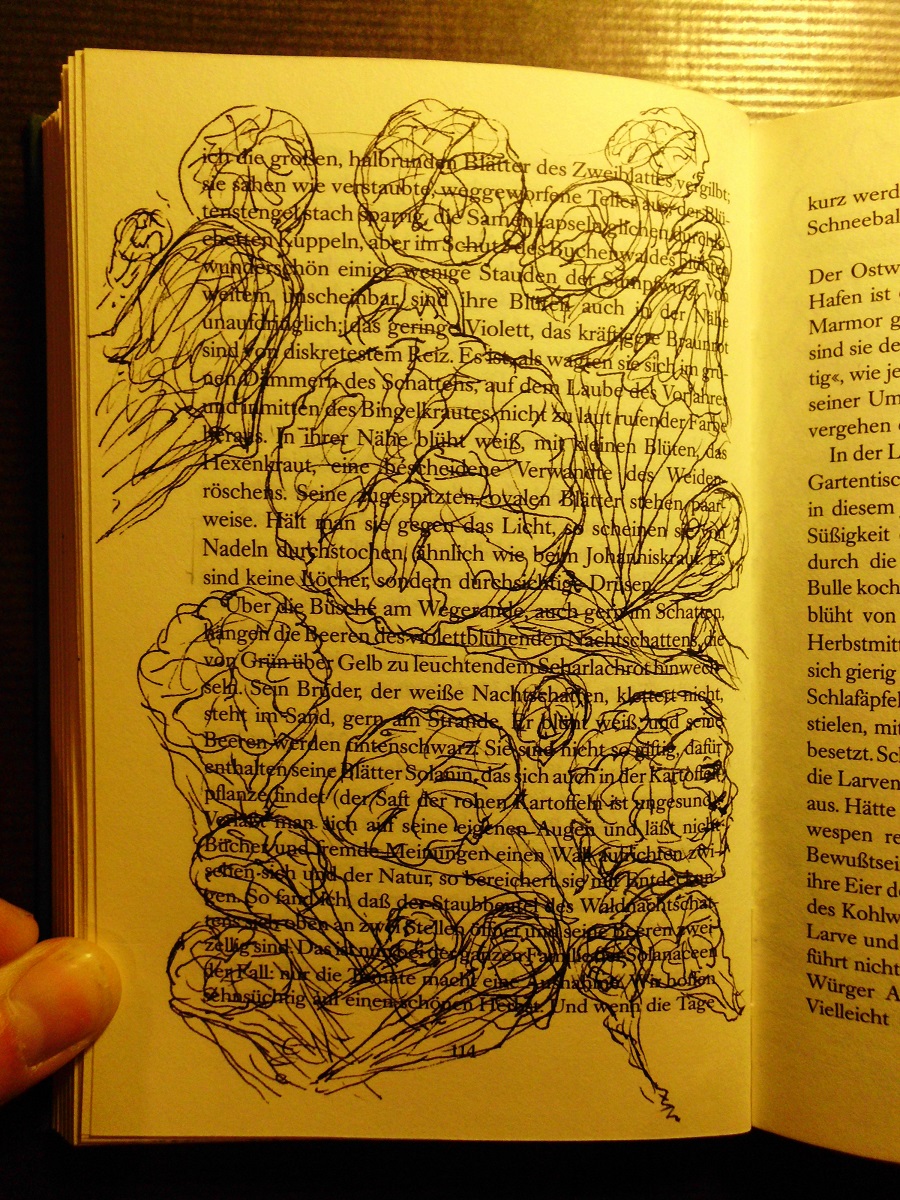 ich die großen, halbrunden Blätter des Zweiblattes vergilbt;
sie sahen wie verstaubte, weggeworfene Teller aus, der Blü-
tenstengel stach sparrig, die Samenkapseln glichen durchlö-
cherten Kuppeln, aber im Schutz des Buchenwaldes blühten
wunderschön einige wenige Stauden der Sumpfwurz. Von
weitem unscheinbar, sind ihre Blüten auch in der Nähe
unaufdringlich; das geringe Violett, das kräftigere Braunrot
sind von diskretestem Reiz. Es ist, als wagten sie sich im grü-
nen Dämmern des Schattens, auf dem Laube des Vorjahres
und inmitten des Bingelkrautes, nicht zu laut rufender Farbe
heraus. In ihrer Nähe blüht weiß, mit kleinen Blüten, das
Hexenkraut, eine bescheidene Verwandte des Weiden-
röschens. Seine zugespitzten, ovalen Blätter stehen paar-
weise. Hält man sie gegen das Licht, so scheinen sie von
Nadeln durchstochen, ähnlich wie beim Johanniskraut. Es
sind keine Löcher, sondern durchsichtige Drüsen.
Über die Büsche am Wegerande, auch gern im Schatten,
hängen die Beeren des violettblühenden Nachtschattens, die
von Grün über Gelb zu leuchtendem Scharlachrot hinwech-
seln. Sein Bruder, der weiße Nachtschatten, klettert nicht,
steht im Sand, gern am Strande. Er blüht weiß, und seine
Beeren werden tintenschwarz. Sie sind nicht so giftig, dafür
enthalten seine Blätter Solanin, das sich auch in der Kartoffel-
pflanze findet (der Saft der rohen Kartoffeln ist ungesund).
Verläßt man sich auf seine eigenen Augen und läßt nicht
Bücher und fremde Meinungen einen Wall aufrichten zwi-
schen sich und der Natur, so bereichert sie mit Entdeckun-
gen. So fand ich, daß der Staubbeutel des Waldnachtschat-
tens sich oben an zwei Stellen öffnet und seine Beeren zwei-
zellig sind. Das ist nun bei der ganzen Familie der Solanaceen
der Fall: nur die Tomate macht eine Ausnahme. Wir hoffen
sehnsüchtig auf einen schönen Herbst. Und wenn die Tage
114
kurz werd
Schneebal
Der Ostw
Hafen ist
Marmor g
sind sie de
tig«, wie je
seiner Um
vergehen
In der L
Gartentisc
in diesem
Süßigkeit
durch die
Bulle koch
blüht von
Herbstmitt
sich gierig
Schlafäpfel
stielen, mit
besetzt. Sc
die Larven
aus. Hätte
wespen re
Bewußtsei
ihre Eier de
des Kohlw
Larve und
führt nicht
Würger A
Vielleicht